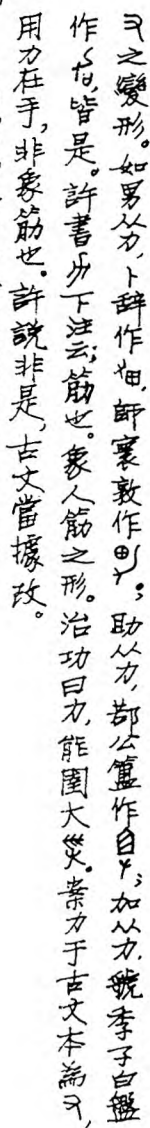 又之變形。如男从力，卜辭作，師寰敦作；助从力，鄀公簠作；加从力，虢季子白盤
作，皆是。許書力下注云：筋也。象人筋之形。治功曰力，能圉大災。案力于古文本為又，
用力在手，非象筋也。許說非是，古文當據改。